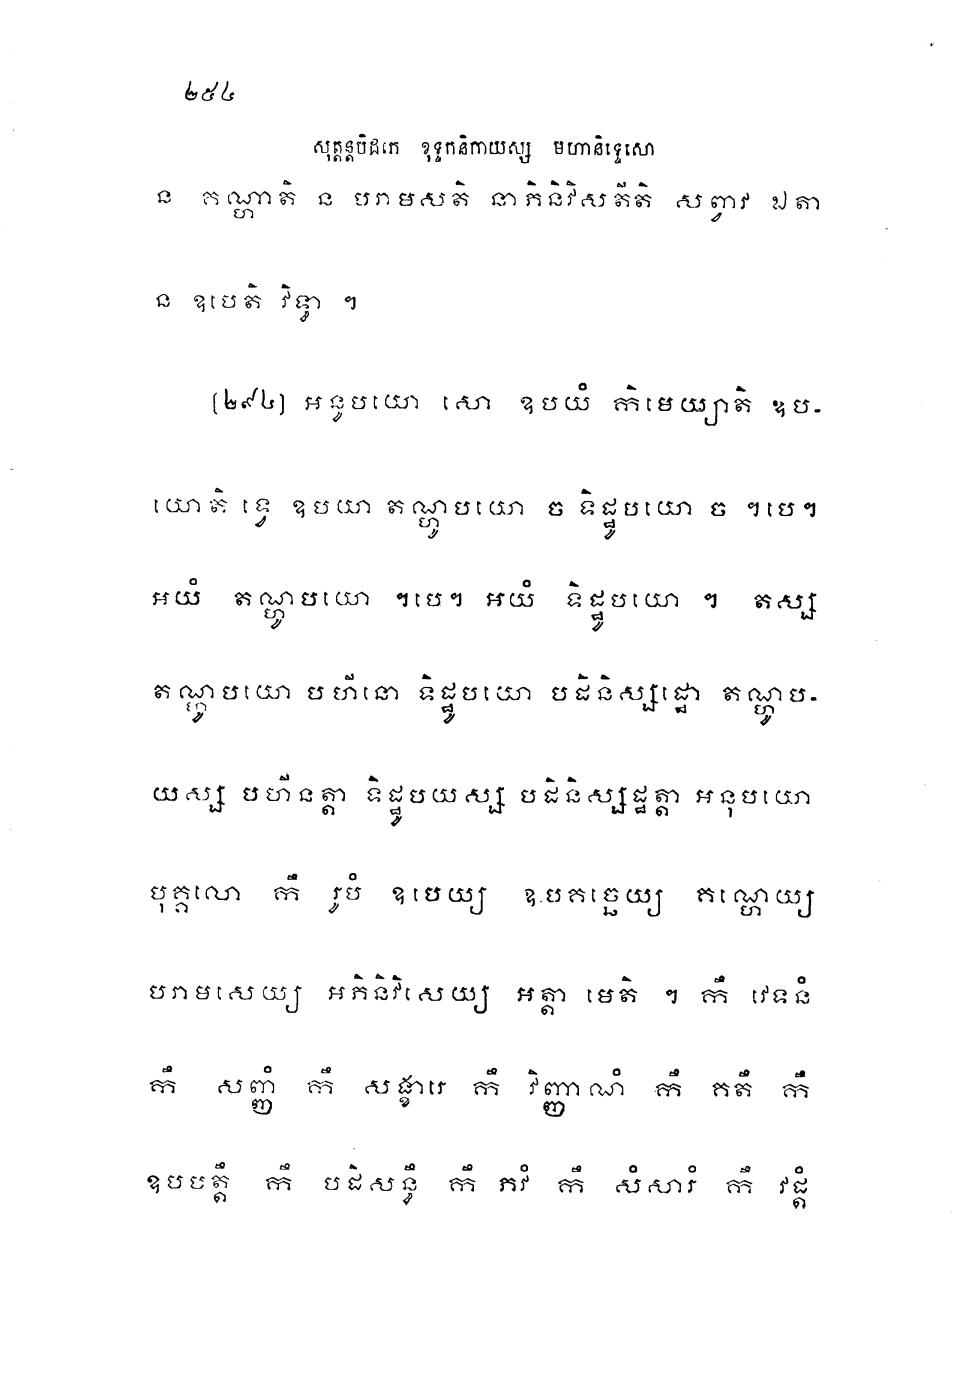 ២៥៤
សុត្តន្តបិដកេ ខុទ្ទកនិកាយស្ស មហានិទ្ទេសោ
ន គណ្ហាតិ ន បរាមសតិ នាភិនិវិសតីតិ សព្វាវ ឯតា
ន ឧបេតិ វិទ្វា ។
(២៩៤) អនូបយោ សោ ឧបយំ កិមេយ្យាតិ ឧប-
យោតិ ទ្វេ ឧបយា តណ្ហូបយោ ច ទិដ្ឋូបយោ ច ។បេ។
អយំ តណ្ហូបយោ ។បេ។ អយំ ទិដ្ឋូបយោ ។ តស្ស
តណ្ហូបយោ បហីនោ ទិដ្ឋូបយោ បដិនិស្សដ្ឋោ តណ្ហូប-
យស្ស បហីនត្តា ទិដ្ឋូបយស្ស បដិនិស្សដ្ឋត្តា អនុបយោ
បុគ្គលោ កឹ រូបំ ឧបេយ្យ ឧបគច្ឆេយ្យ គណ្ហេយ្យ
បរាមសេយ្យ អភិនិវិសេយ្យ អត្តា មេតិ ។ កឹ វេទនំ
កឹ សញ្ញំ កឹ សង្ខារេ កឹ វិញ្ញាណំ កឹ គតឹ កឹ
ឧបបត្តឹ កឹ បដិសន្ធឹ កឹ ភវំ កឹ សំសារំ កឹ វដ្តំ